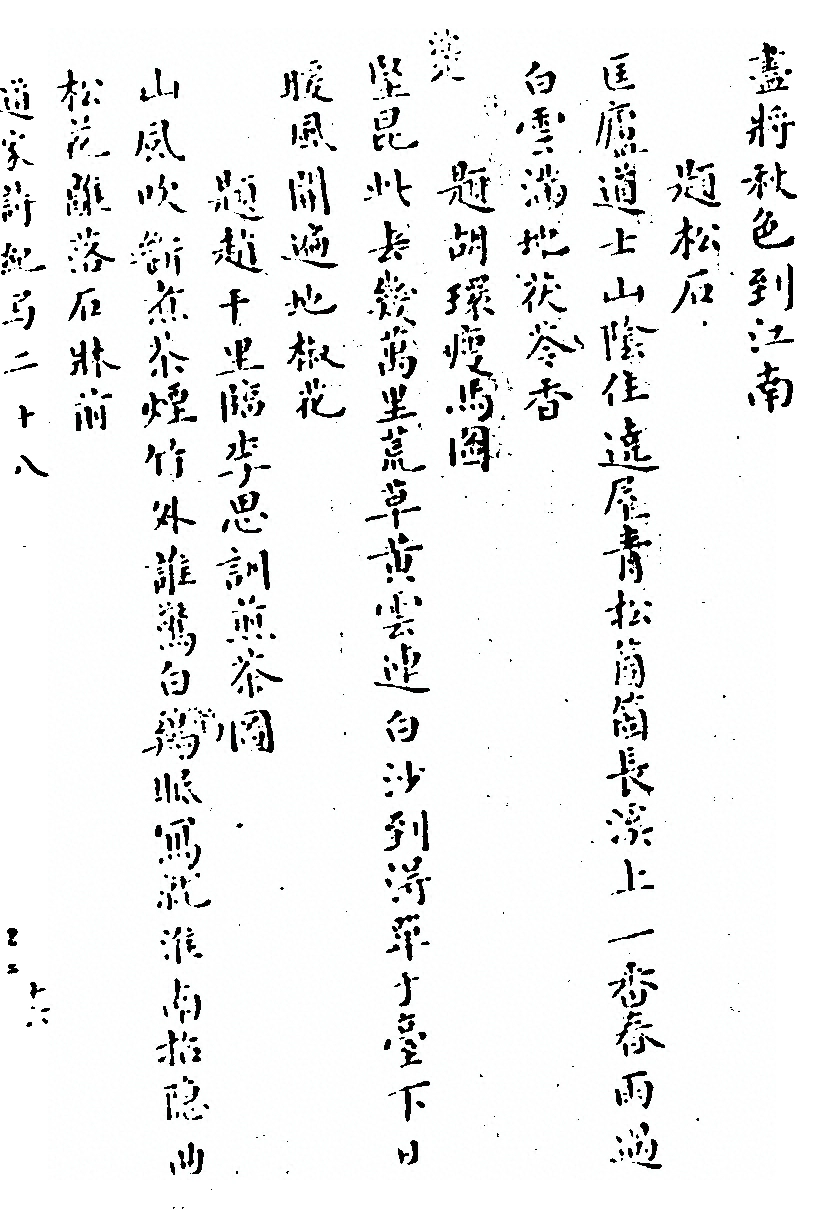 盡將秋色到江南
題松石
匡廬道士山陰住遶屋青松箇箇長溪上一番春雨過
白雲滿地茯苓香
題胡環瘦馬圖
堅昆此去幾萬里荒草黃雲連白沙到得單于臺下日
暖風開遍地椒花
題趙千里臨李思訓煎茶圖
山風吹斷煮茶煙竹外誰驚白鶴眠寫就淮南招隱曲
松花離落石牀前
道家詩紀 二十八
十六